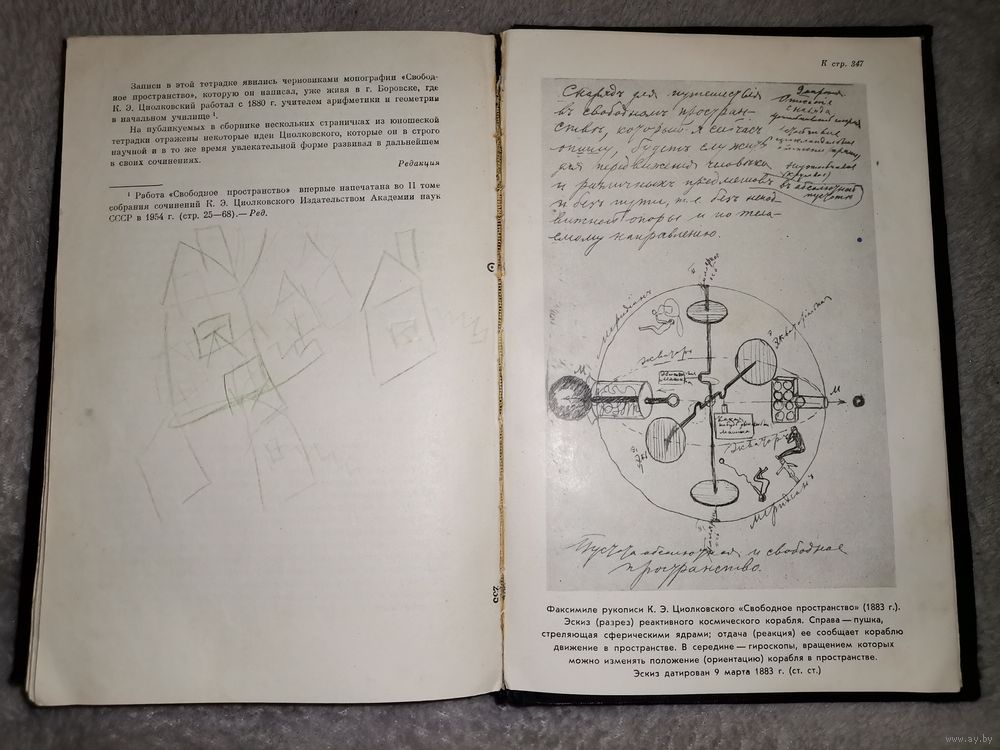 Записи в этой тетрадке явились черновиками монографии «Свобод-
ное пространство», которую он написал, уже живя в г. Боровске, где
К. Э. Циолковский работал с 1880 г. учителем арифметики и геометрии
в начальном училище ¹.
На публикуемых в сборнике нескольких страничках из юношеской
тетрадки отражены некоторые идеи Циолковского, которые он в строго
научной и в то же время увлекательной форме развивал в дальнейшем
в своих сочинениях.
Редакция
¹ Работа «Свободное пространство» впервые напечатана во II томе
собрания сочинений К. Э. Циолковского Издательством Академии наук
СССР в 1954 г. (стр. 25—68).— Ред.
К стр. 347
Снарядъ для путешествія
въ свободномъ простран-
ствѣ, который я сейчасъ
опишу, будетъ служить
для передвиженія человѣка
и различныхъ предметовъ
и безъ пути, т. е. безъ непод-
вижной опоры и по жела-
емому направленію.
въ абсолютной
пустотѣ
Меридіанъ
Экваторъ
М
машина
М
Экваторъ
машина
Меридіанъ
Пустота абсолютная и свободное
пространство.
Факсимиле рукописи К. Э. Циолковского «Свободное пространство» (1883 г.).
Эскиз (разрез) реактивного космического корабля. Справа — пушка,
стреляющая сферическими ядрами; отдача (реакция) ее сообщает кораблю
движение в пространстве. В середине — гироскопы, вращением которых
можно изменять положение (ориентацию) корабля в пространстве.
Эскиз датирован 9 марта 1883 г. (ст. ст.)
www.ay.by